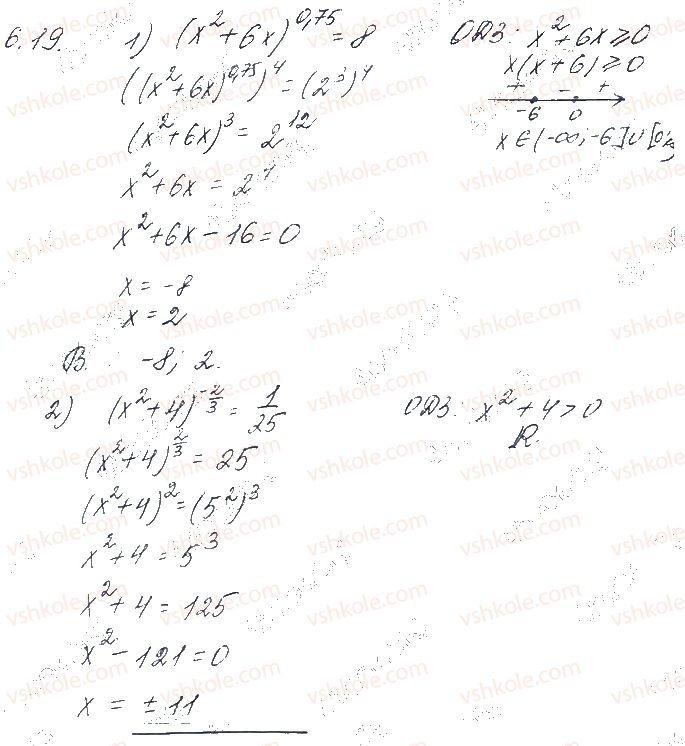 6.19. 1) (x² + 6x)^0,75 = 8
ОДЗ: x² + 6x ≥ 0
((x² + 6x)^0,75)^4 = (2³)^4
x(x + 6) ≥ 0
+ − +
−6 0
(x² + 6x)³ = 2^12
x ∈ (−∞; −6] ∪ [0;
x² + 6x = 2^4
x² + 6x − 16 = 0
x = −8
x = 2
В. −8; 2.
2) (x² + 4)^(−2/3) = 1/25
ОДЗ. x² + 4 > 0
R.
(x² + 4)^(2/3) = 25
(x² + 4)² = (5²)³
x² + 4 = 5³
x² + 4 = 125
x² − 121 = 0
x = ± 11
vshkole.com